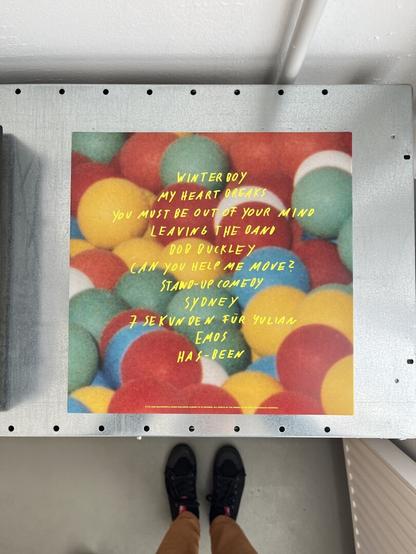 WINTERBOY
MY HEART BREAKS
YOU MUST BE OUT OF YOUR MIND
LEAVING THE BAND
BOB BUCKLEY
CAN YOU HELP ME MOVE?
STAND-UP COMEDY
SYDNEY
7 SEKUNDEN FÜR YULIAN
EMOS
HAS-BEEN